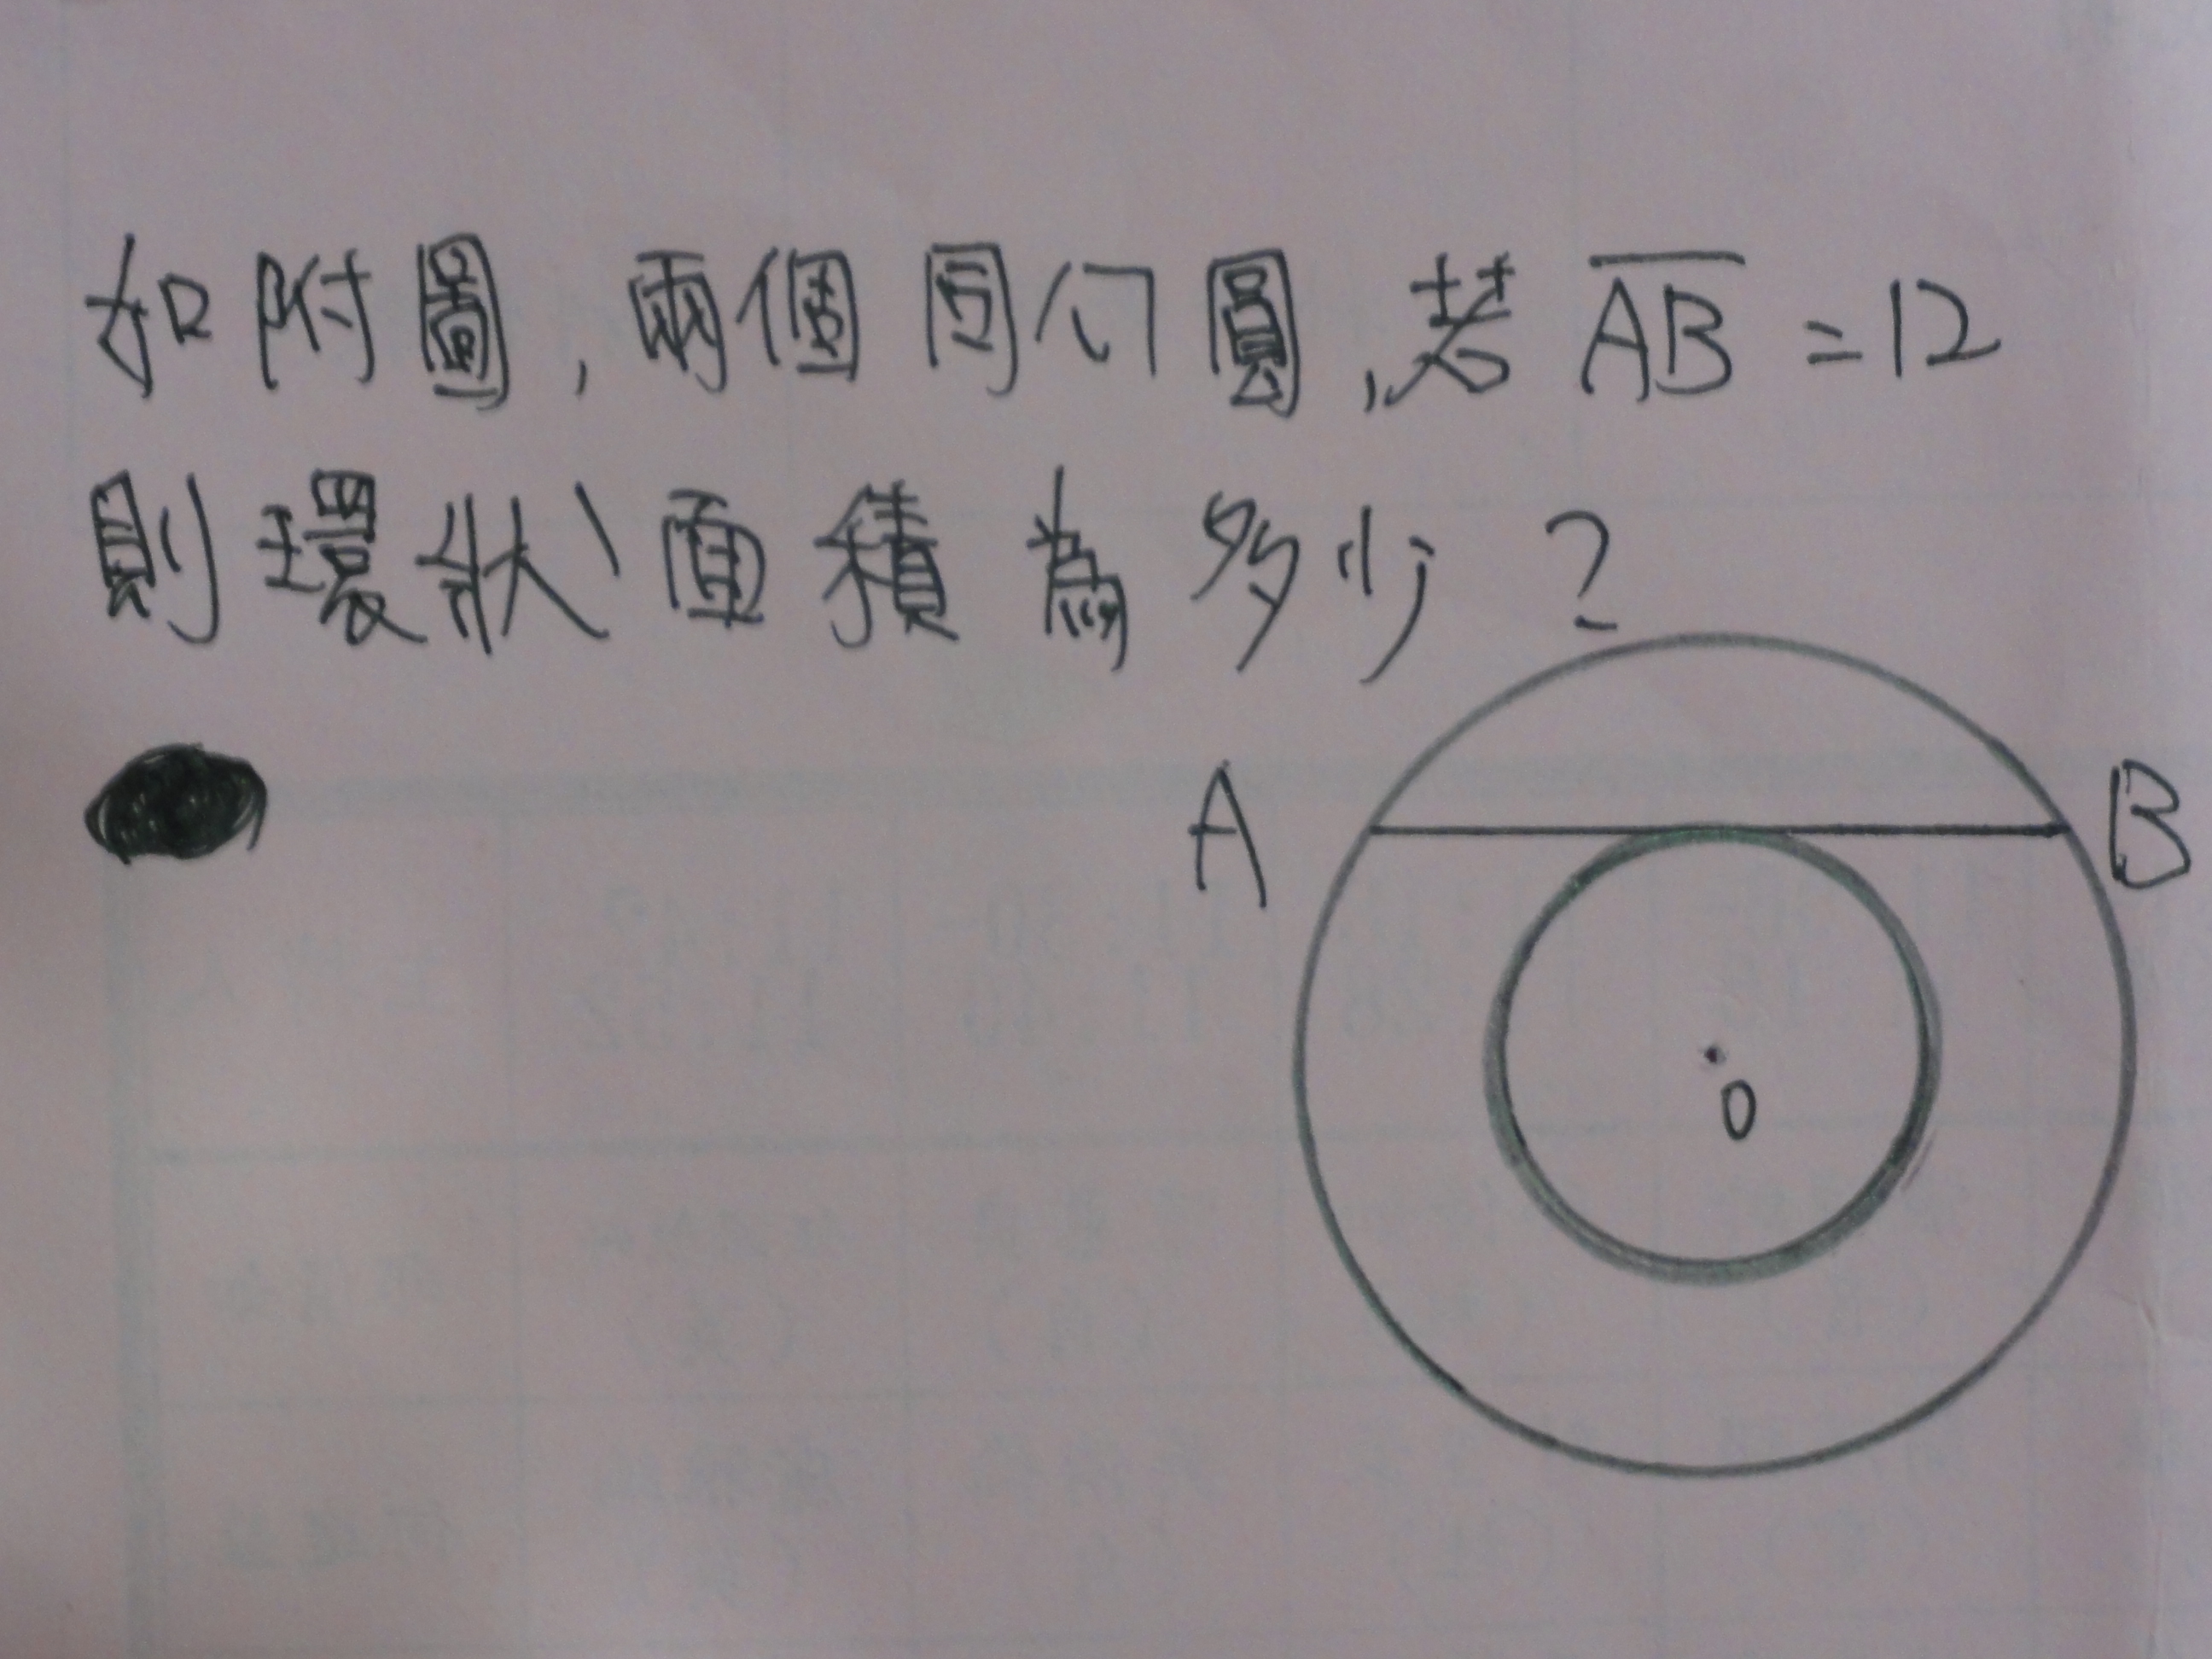 如附圖,兩個同心圓,若AB=12
則環狀面積為多少?
A
B
O